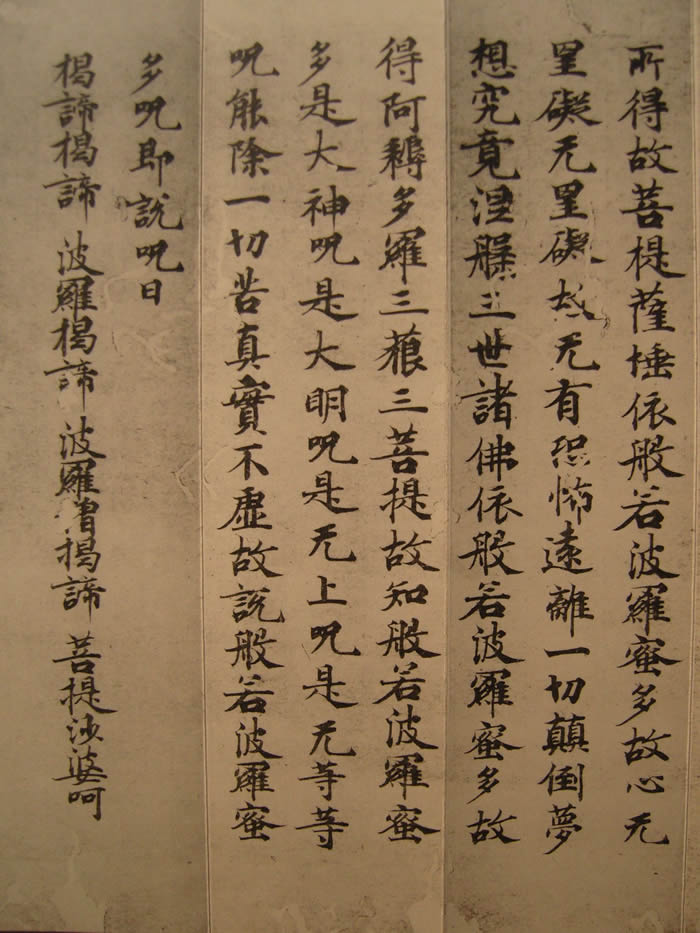 所得故菩提薩埵依般若波羅蜜多故心无
罣礙无罣礙故无有恐怖遠離一切顛倒夢
想究竟涅槃三世諸佛依般若波羅蜜多故
得阿耨多羅三藐三菩提故知般若波羅蜜
多是大神呪是大明呪是无上呪是无等等
呪能除一切苦真實不虛故說般若波羅蜜
多呪即說呪曰
揭諦揭諦 波羅揭諦 波羅僧揭諦 菩提沙婆呵